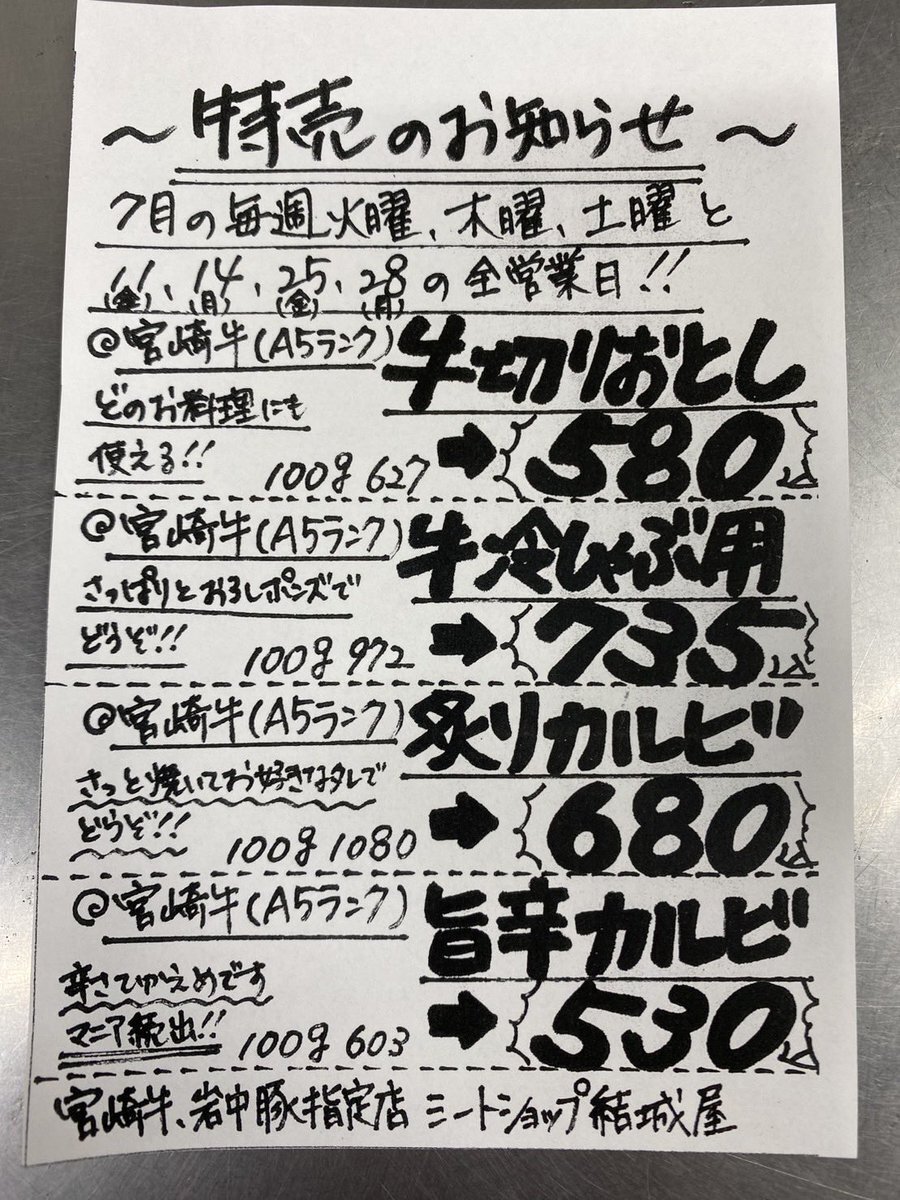 ～特売のお知らせ～
7月の毎週火曜、木曜、土曜と
11(金)、14(月)、25(金)、28(月)の全営業日!!
@宮崎牛(A5ランク)牛切りおとし
どのお料理にも
使える!! 100g 627 ➡ 580
@宮崎牛(A5ランク)牛冷しゃぶ用
さっぱりとおろしポンズで
どうぞ!! 100g 972 ➡ 735
@宮崎牛(A5ランク)炙りカルビ
さっと焼いてお好きなタレで
どうぞ!! 100g 1080 ➡ 680
@宮崎牛(A5ランク)旨辛カルビ
辛さひかえめです
マニア続出!! 100g 603 ➡ 530
宮崎牛、岩中豚指定店 ミートショップ結城屋